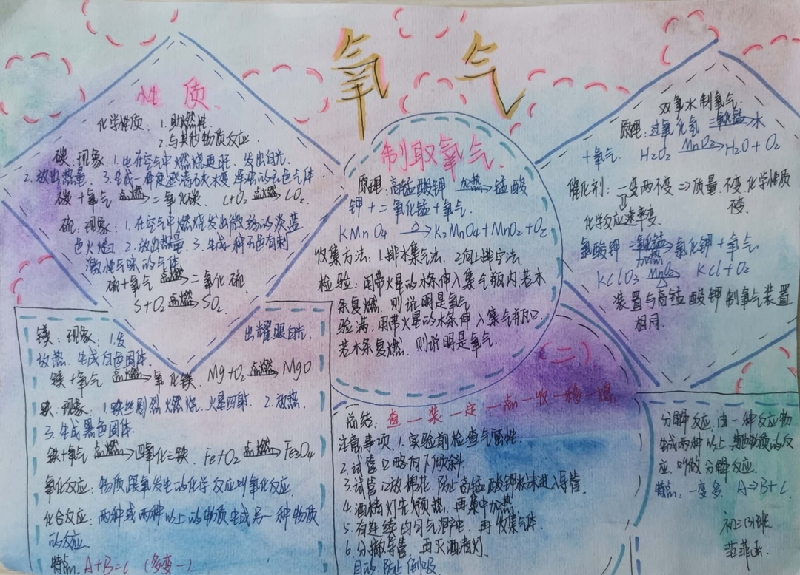 氧气
性质
化学性质: 1. 助燃性
2. 与其他物质反应
碳: 现象: 1. 在空气中燃烧更旺, 发出白光
2. 放出热量 3. 生成一种
碳+氧气 点燃→ 二氧化碳 C+O2 点燃→ CO2
硫: 现象: 1. 在空气中燃烧发出微弱的淡蓝
色火焰 2. 放出热量 3. 生成一种有刺
激性气味的气体
硫+氧气 点燃→ 二氧化硫
S+O2 点燃→ SO2
镁: 现象: 1. 发出耀眼白光
放热, 生成白色固体
镁+氧气 点燃→ 氧化镁 Mg+O2 点燃→ MgO
铁: 现象: 1. 铁丝剧烈燃烧, 火星四射 2. 放热
3. 生成黑色固体
铁+氧气 点燃→ 四氧化三铁 Fe+O2 点燃→ Fe3O4
氧化反应: 物质跟氧发生的化学反应叫氧化反应.
化合反应: 两种或两种以上的物质生成另一种物质
的反应.
特点: A+B=C (多变一)
制取氧气
原理: 高锰酸钾 加热→ 锰酸
钾+二氧化锰+氧气
KMnO4 △→ K2MnO4+MnO2+O2
收集方法: 1. 排水集气法 2. 向上排空法
检验: 用带火星的木条伸入集气瓶内若木
条复燃, 则说明是氧气
验满: 用带火星的木条伸入集气瓶口
若木条复燃, 则说明是氧气
(二)
总结: 查一装一定一点一收一
注意事项 1. 实验前检查气密性
2. 试管口略向下倾斜
3. 试管口放棉花 防止高锰酸钾粉末进入导管
4. 酒精灯先预热, 再集中加热
5. 有连续均匀气泡, 再收集气体
6. 先撤导管, 再灭酒精灯
目的 防止倒吸
双氧水制氧气
原理: 过氧化氢 二氧化锰→ 水
+氧气 H2O2 MnO2→ H2O+O2
催化剂: 一变两不变 ⇒ 质量不变, 化学性质
不变
化学反应速率变
氯酸钾 二氧化锰→ 氯化钾+氧气
KClO3 MnO2→ KCl+O2
装置与高锰酸钾制氧气装置
相同.
分解反应: 由一种反应物
生成两种或以上其他物质的反
应, 叫做分解反应.
特点: 一变多 A⇒B+C